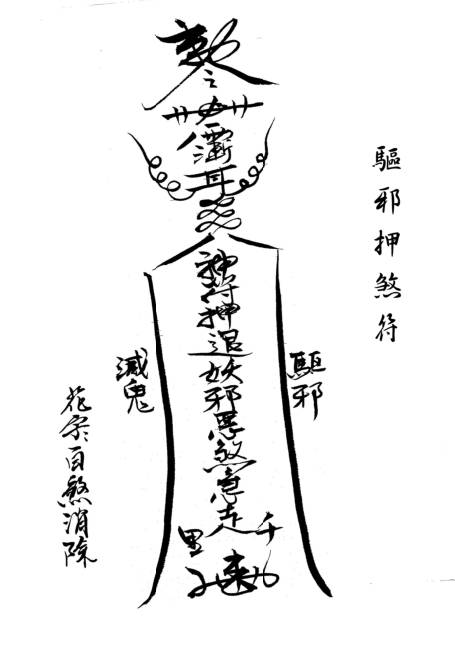 驅邪押煞符
驅邪
勅
神符押退妖邪惡煞急走千里
滅鬼
花字百煞消除